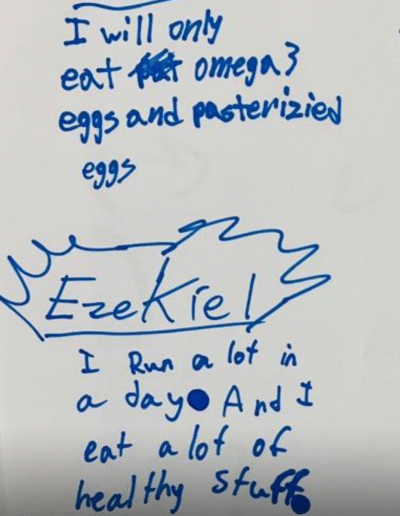 I will only
eat omega3
eggs and pasterizied
eggs
Ezekiel
I Run a lot in
a day. And I
eat a lot of
healthy stuff.